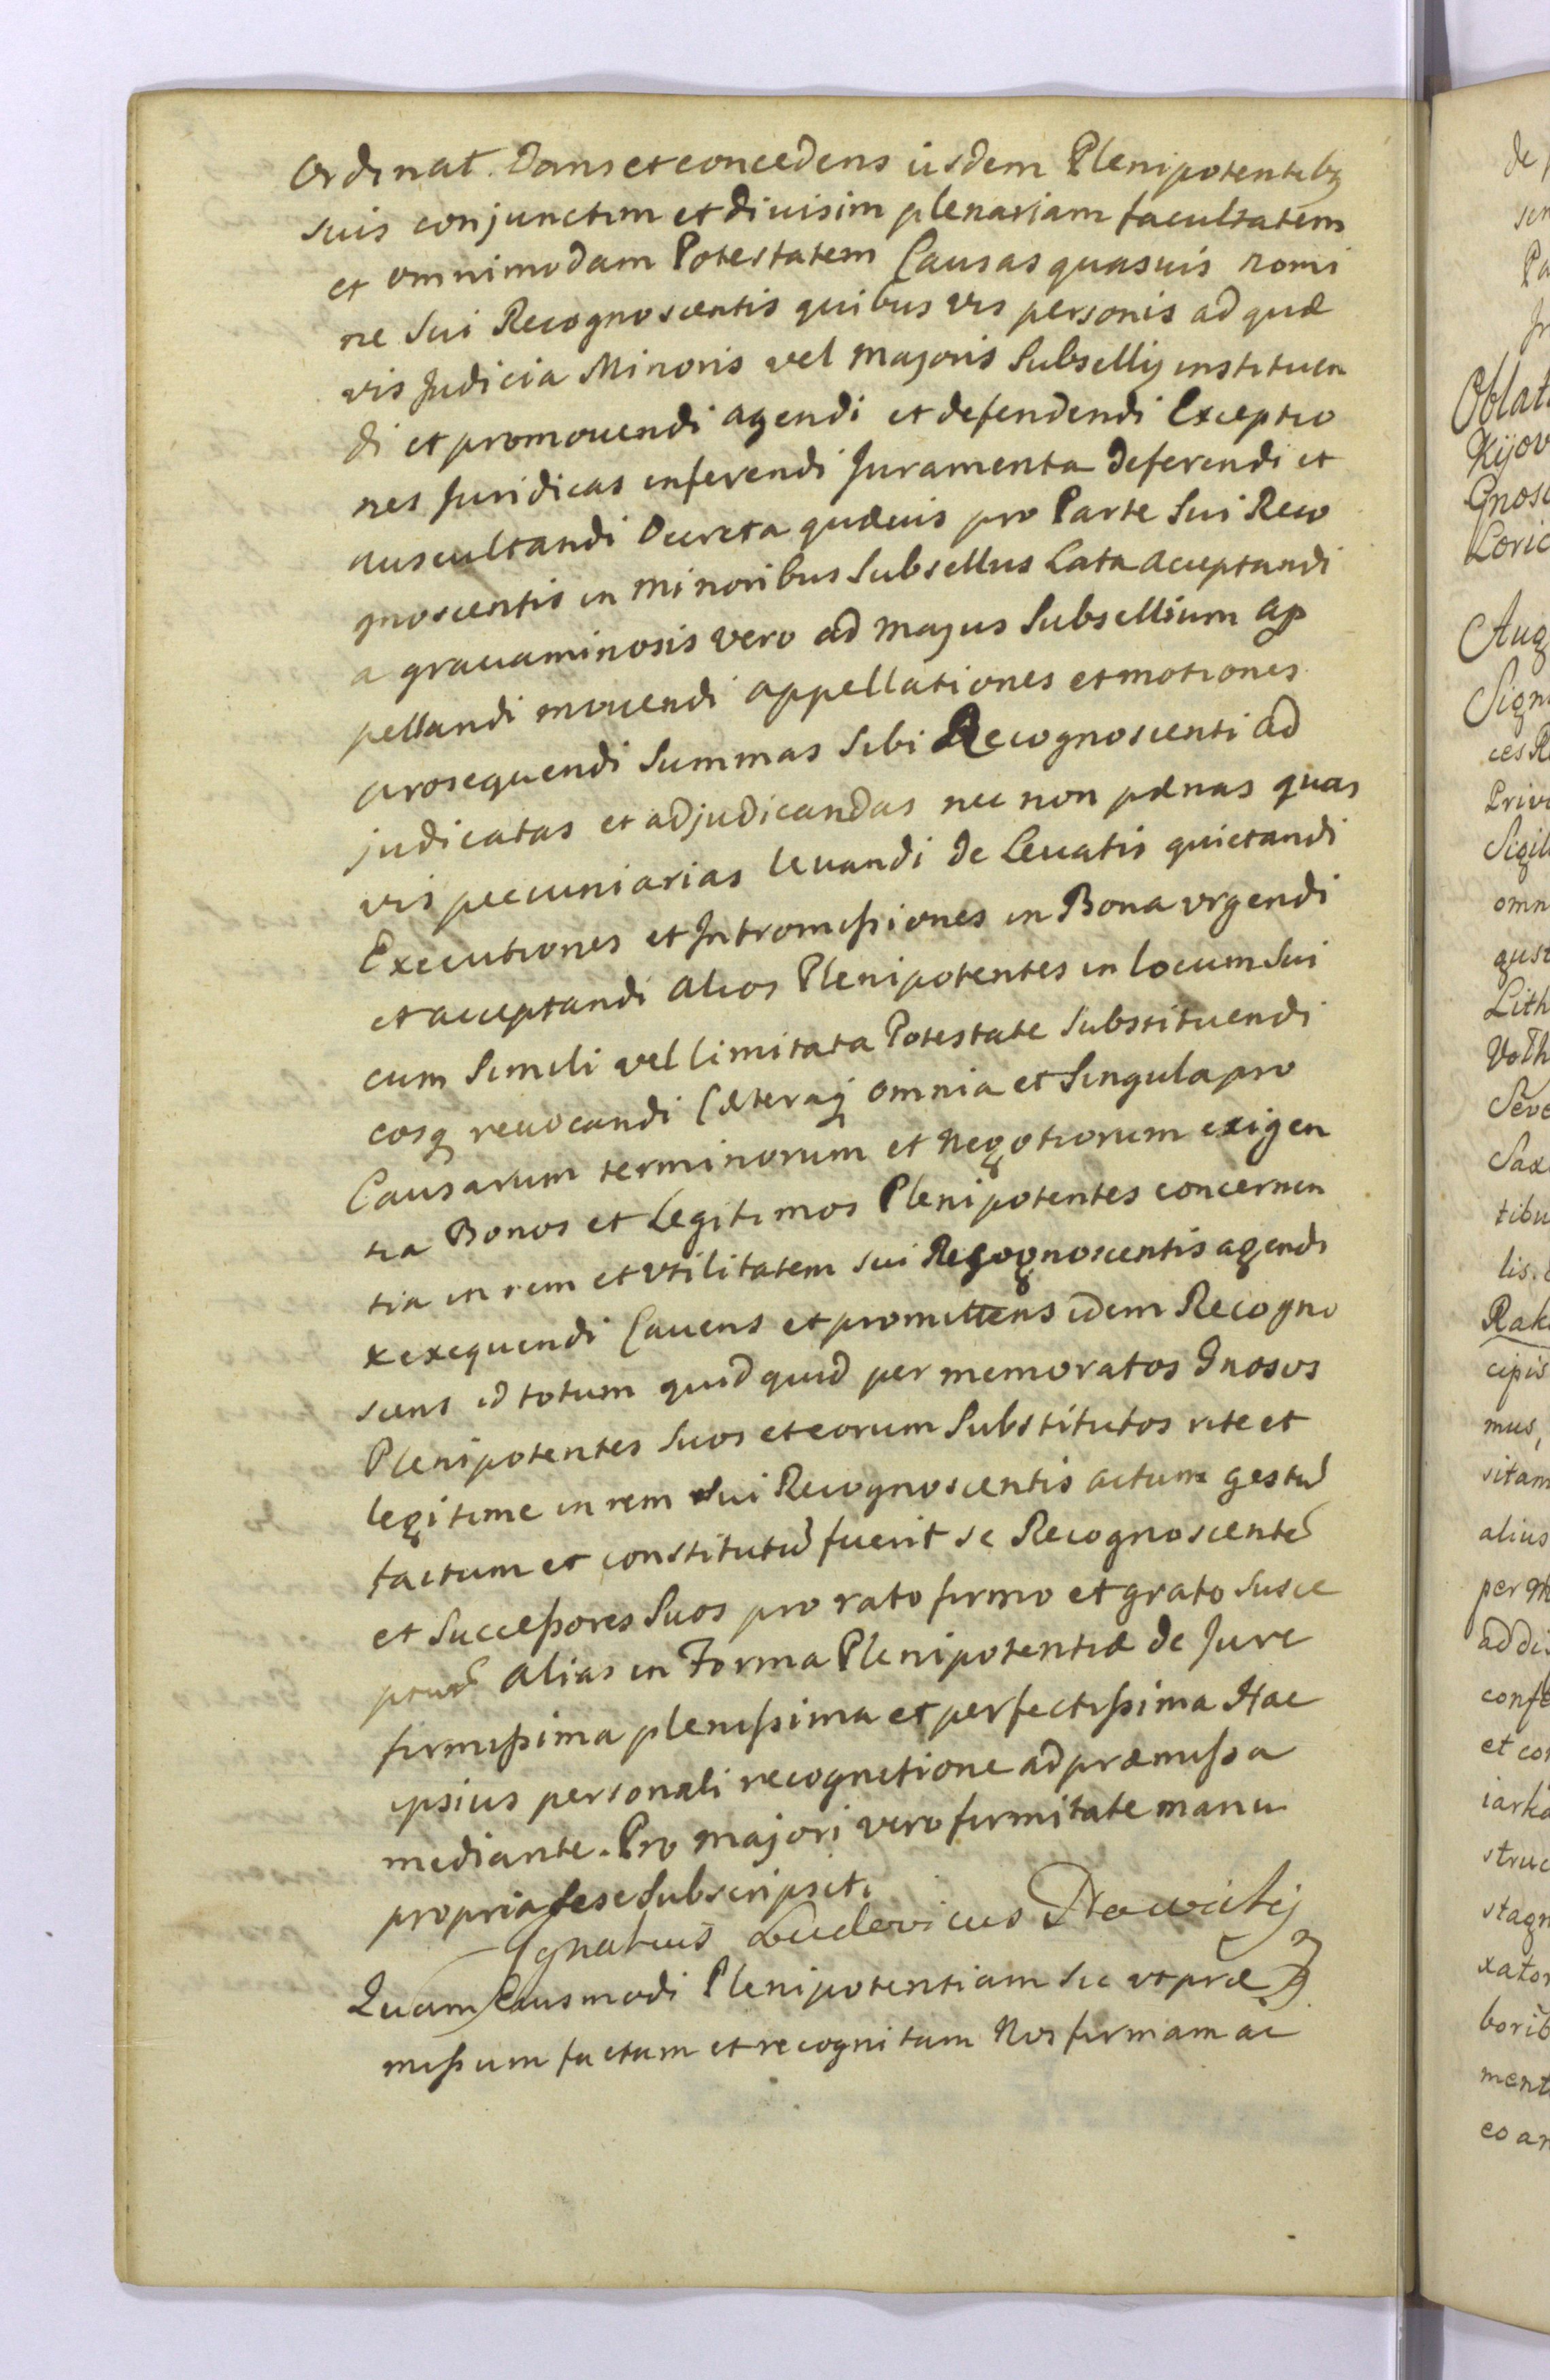 Ordinat. Dans et concedens iisdem Plenipotentibq
suis conjunctim et diuisim plenariam facultatem
et omnimodam Potestatem Causas quasuis nomi
ne Sui Recognoscentis quibus vis personis ad quæ
vis Judicia Minoris vel majoris Subsellij instituen
di et promouendi agendi et defendendi Exceptio
nes Juridicas inferendi Juramenta deferendi et
auscultandi Decreta quæuis pro Parte Sui Reco
gnoscentis in minoribus Subselliis Lata acceptandi
a grauaminosis vero ad majus Subsellium ap
pellandi mouendi appellationes et motiones
prosequendi Summas Sibi Recognoscenti ad
judicatas et adjudicandas nec non pænas quas
vis pecuniarias leuandi de Leuatis quietandi
Executiones et Intromißiones in Bona vrgendi
et acceptandi alios Plenipotentes in locum Sui
cum Simili vel limitata Potestate Substituendi
eosq reuocandi Cæteraq omnia et Singula pro
Causarum terminorum et negotiorum exigen
tia Bonos et Legitimos Plenipotentes concernen
tia in rem et vtilitatem sui Recognoscentis agendi
exequendi Cauens et promittens idem Recogno
scens id totum quidquid per memoratos Gnosos
Plenipotentes Suos et eorum Substitutos rite et
legitime in rem Sui Recognoscentis actum gestū
factum et constitutū fuerit se Recognoscentē
et Succeßores Suos pro rato firmo et grato susce
pturū alias in Forma Plenipotentiæ de Jure
firmißima plenißima et perfectißima Hac
ipsius personali recognitione ad præmißa
mediante. Pro majori vero firmitate manu
propria sese Subscripsit.
Ignatius Ludovicus
Quam Eiusmodi Plenipotentiam sic vt præ
mißum factam et recognitam Nos firmam ac
de
Pa
Oblat
Kijov
Gnosc
Loric
Aug
Sign
ces R
Priv
Sigil
omn
gust
Lith
Volh
Seve
Sax
tibu
lis
Rak
cipis
mus,
sitam
alius
per M
ad di
confe
et co
iarko
struc
stagn
xator
borib
ment
eo an